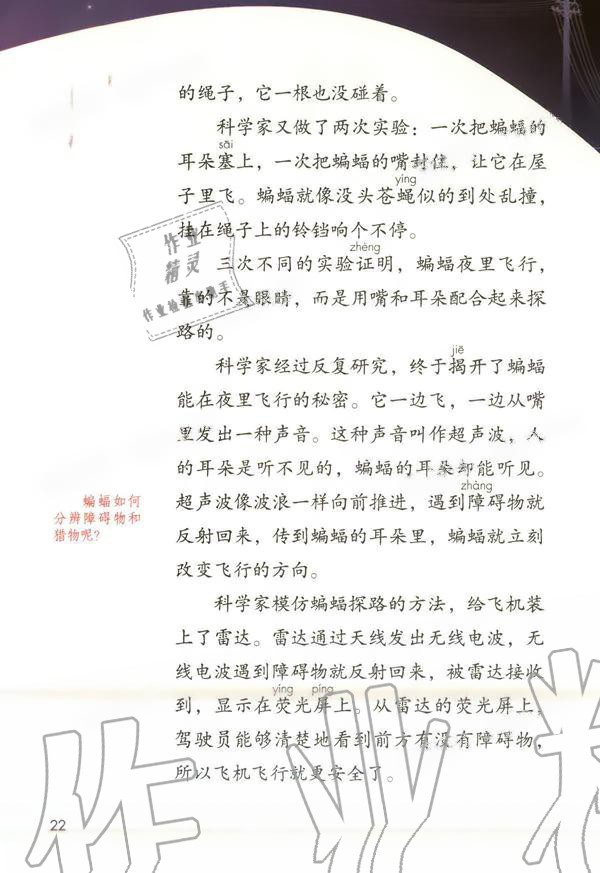 的绳子，它一根也没碰着。
科学家又做了两次实验：一次把蝙蝠的
sāi
耳朵塞上，一次把蝙蝠的嘴封住，让它在屋
yíng
子里飞。蝙蝠就像没头苍蝇似的到处乱撞，
挂在绳子上的铃铛响个不停。
zhèng
三次不同的实验证明，蝙蝠夜里飞行，
靠的不是眼睛，而是用嘴和耳朵配合起来探
路的。
jiē
科学家经过反复研究，终于揭开了蝙蝠
能在夜里飞行的秘密。它一边飞，一边从嘴
里发出一种声音。这种声音叫作超声波，人
的耳朵是听不见的，蝙蝠的耳朵却能听见。
zhàng
超声波像波浪一样向前推进，遇到障碍物就
反射回来，传到蝙蝠的耳朵里，蝙蝠就立刻
改变飞行的方向。
蝙蝠如何
分辨障碍物和
猎物呢？
科学家模仿蝙蝠探路的方法，给飞机装
上了雷达。雷达通过天线发出无线电波，无
线电波遇到障碍物就反射回来，被雷达接收
yíng píng
到，显示在荧光屏上。从雷达的荧光屏上，
驾驶员能够清楚地看到前方有没有障碍物，
所以飞机飞行就更安全了。
22
作业
精灵
作业检查小助手
作业精